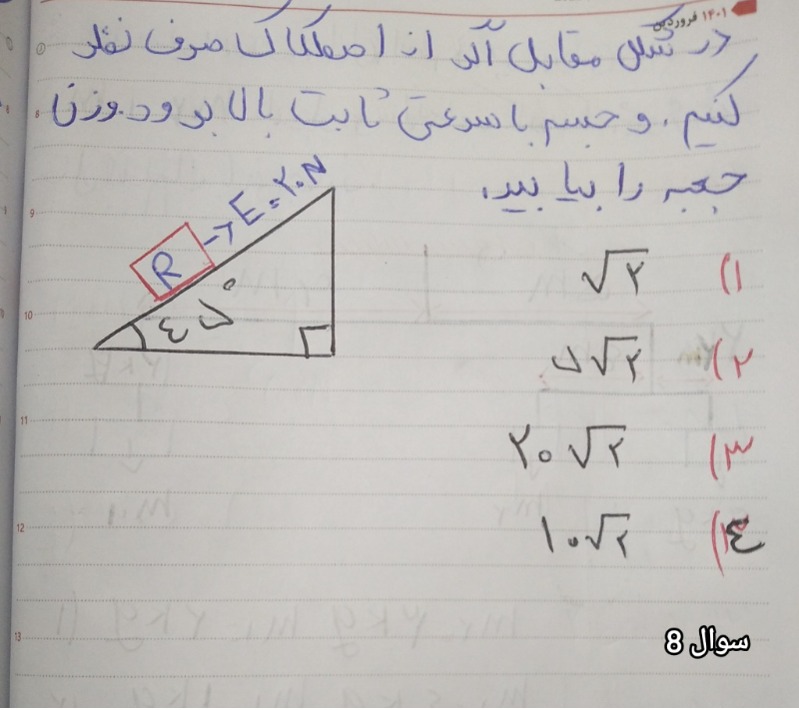 ۱۴۰۱ فروردین
در شکل مقابل اگر از اصطکاک صرف نظر
کنیم. و جسم با سرعتی ثابت بالا برود. وزن
جعبه را بیابید.
R → E = ۲۰N
۴۵°
۱) √۲
۲) ۵√۲
۳) ۲۰√۲
۴) ۱۰√۲
8
9
10
11
12
13
سوال 8